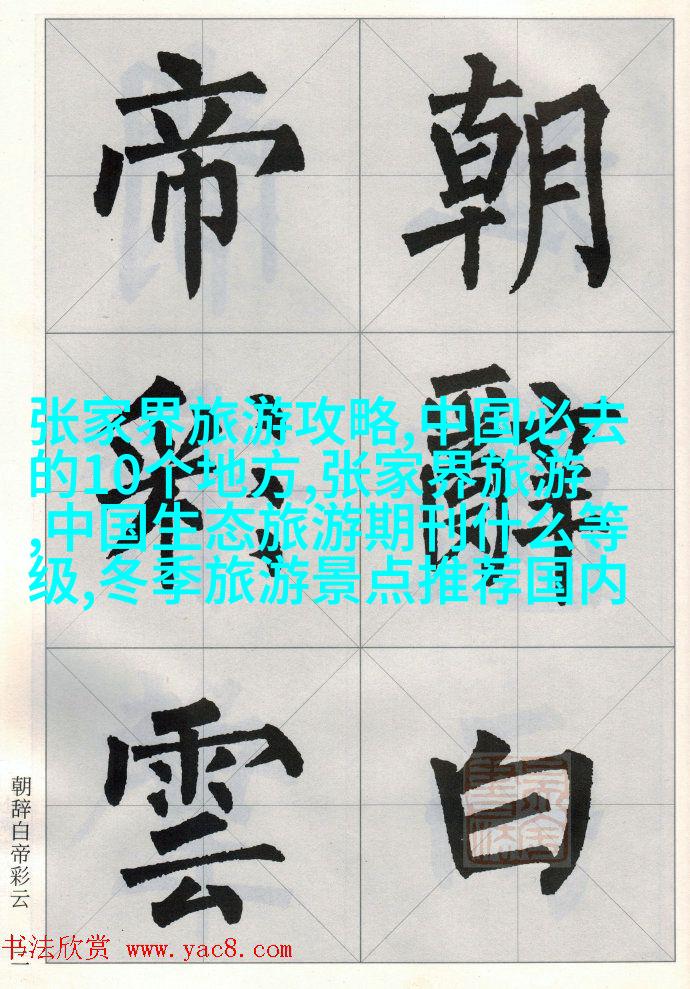 朝
辭
白
帝
彩
雲
张家界旅游攻略,中国必去
的10个地方,张家界旅游
,中国生态旅游期刊什么等
级,冬季旅游景点推荐国内
朝辞白帝彩云
书法欣赏 www.yac8.com